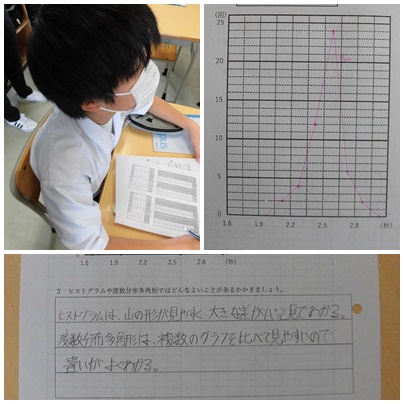 (回)
25
20
15
10
5
0
1.6 2.2 2.5 2.8 (秒)
1.6 2.2 2.5 2.8 (秒)
3 ヒストグラムや度数分布多角形ではどんなよいことがあるかかきましょう。
ヒストグラムは、山の形が見やすく 大きな差がパッと見てわかる。
度数分布多角形は、複数のグラフを比べて見やすいので
違いがよくわかる。